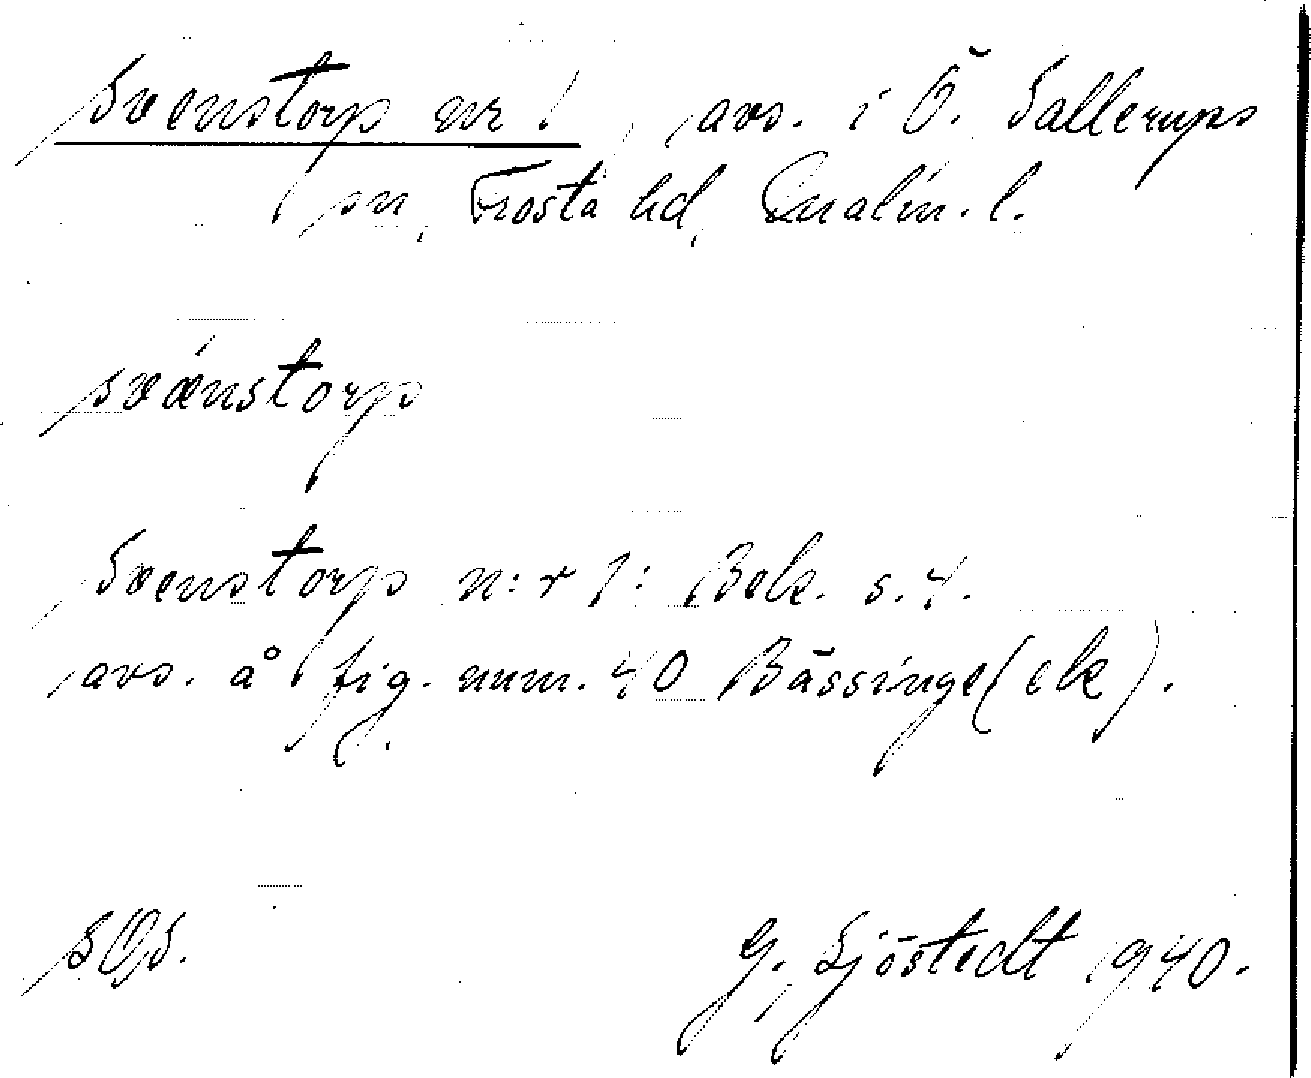 Svenstorp nr 1, avs. i Ö. Sallerups
sn, Frosta hd, Malm. l.
svǽnstorp
Svenstorp n:r 1: Bek. s. 4.
avs. å fig. num. 40 Bässinge (ek).
G. Sjöstedt 1940.